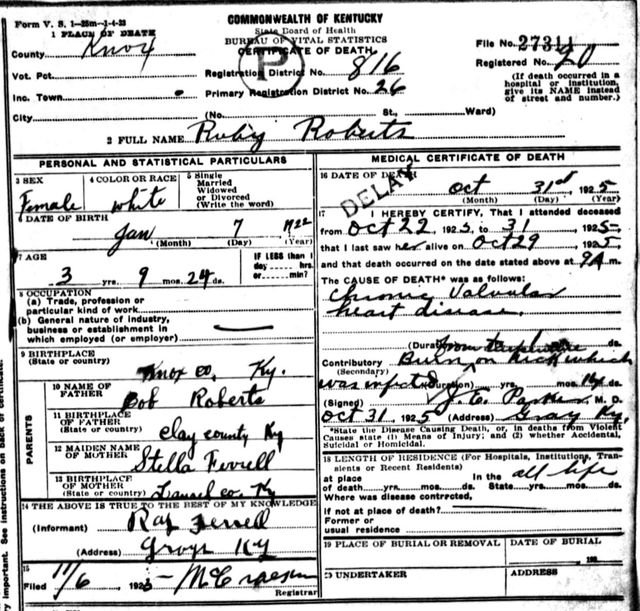 Form V. S. 1—25m—1-4-23
COMMONWEALTH OF KENTUCKY
State Board of Health
BUREAU OF VITAL STATISTICS
CERTIFICATE OF DEATH
1 PLACE OF DEATH
County Knox
File No. 27311
Registered No. 20
P
Vot. Pct.
Registration District No. 816
(If death occurred in a hospital or institution, give its NAME instead of street and number.)
Inc. Town
Primary Registration District No. 26
City (No. St., Ward)
2 FULL NAME Ruby Roberts
PERSONAL AND STATISTICAL PARTICULARS
3 SEX Female
4 COLOR OR RACE White
5 Single Married Widowed or Divorced (Write the word)
6 DATE OF BIRTH
Jan 7 1922
(Month) (Day) (Year)
7 AGE
3 yrs. 9 mos. 24 ds.
IF LESS than 1 day hrs. or min?
8 OCCUPATION
(a) Trade, profession or particular kind of work
(b) General nature of industry, business or establishment in which employed (or employer)
9 BIRTHPLACE
(State or country) Knox co. Ky.
PARENTS
10 NAME OF FATHER Bob Roberts
11 BIRTHPLACE OF FATHER
(State or country) Clay county Ky
12 MAIDEN NAME OF MOTHER Stella Ferrell
13 BIRTHPLACE OF MOTHER
(State or country) Laurel co. Ky
14 THE ABOVE IS TRUE TO THE BEST OF MY KNOWLEDGE
(Informant)
(Address) Ky
15
Filed 11/6 192
Registrar
MEDICAL CERTIFICATE OF DEATH
16 DATE OF DEATH
DELAY
Oct 31st, 1925
(Month) (Day) (Year)
17 I HEREBY CERTIFY, That I attended deceased
from Oct 22, 1925, to 31, 1925
that I last saw her alive on Oct 29, 1925
and that death occurred on the date stated above at 9 A m.
The CAUSE OF DEATH* was as follows:
Chronic Valvular
heart disease.
(Duration)
Contributory Burn on which
(Secondary)
was infected (Duration) yrs. mos. ds.
(Signed) M. D.
Oct 31, 1925 (Address) Gray Ky.
*State the Disease Causing Death, or, in deaths from Violent Causes state (1) Means of Injury; and (2) whether Accidental, Suicidal or Homicidal.
18 LENGTH OF RESIDENCE (For Hospitals, Institutions, Transients or Recent Residents)
at place of death yrs. mos. ds. In the State yrs. mos. ds. all life
Where was disease contracted,
if not at place of death?
Former or usual residence
19 PLACE OF BURIAL OR REMOVAL
DATE OF BURIAL
192
20 UNDERTAKER
ADDRESS
ry important. See instructions on back of certificate.